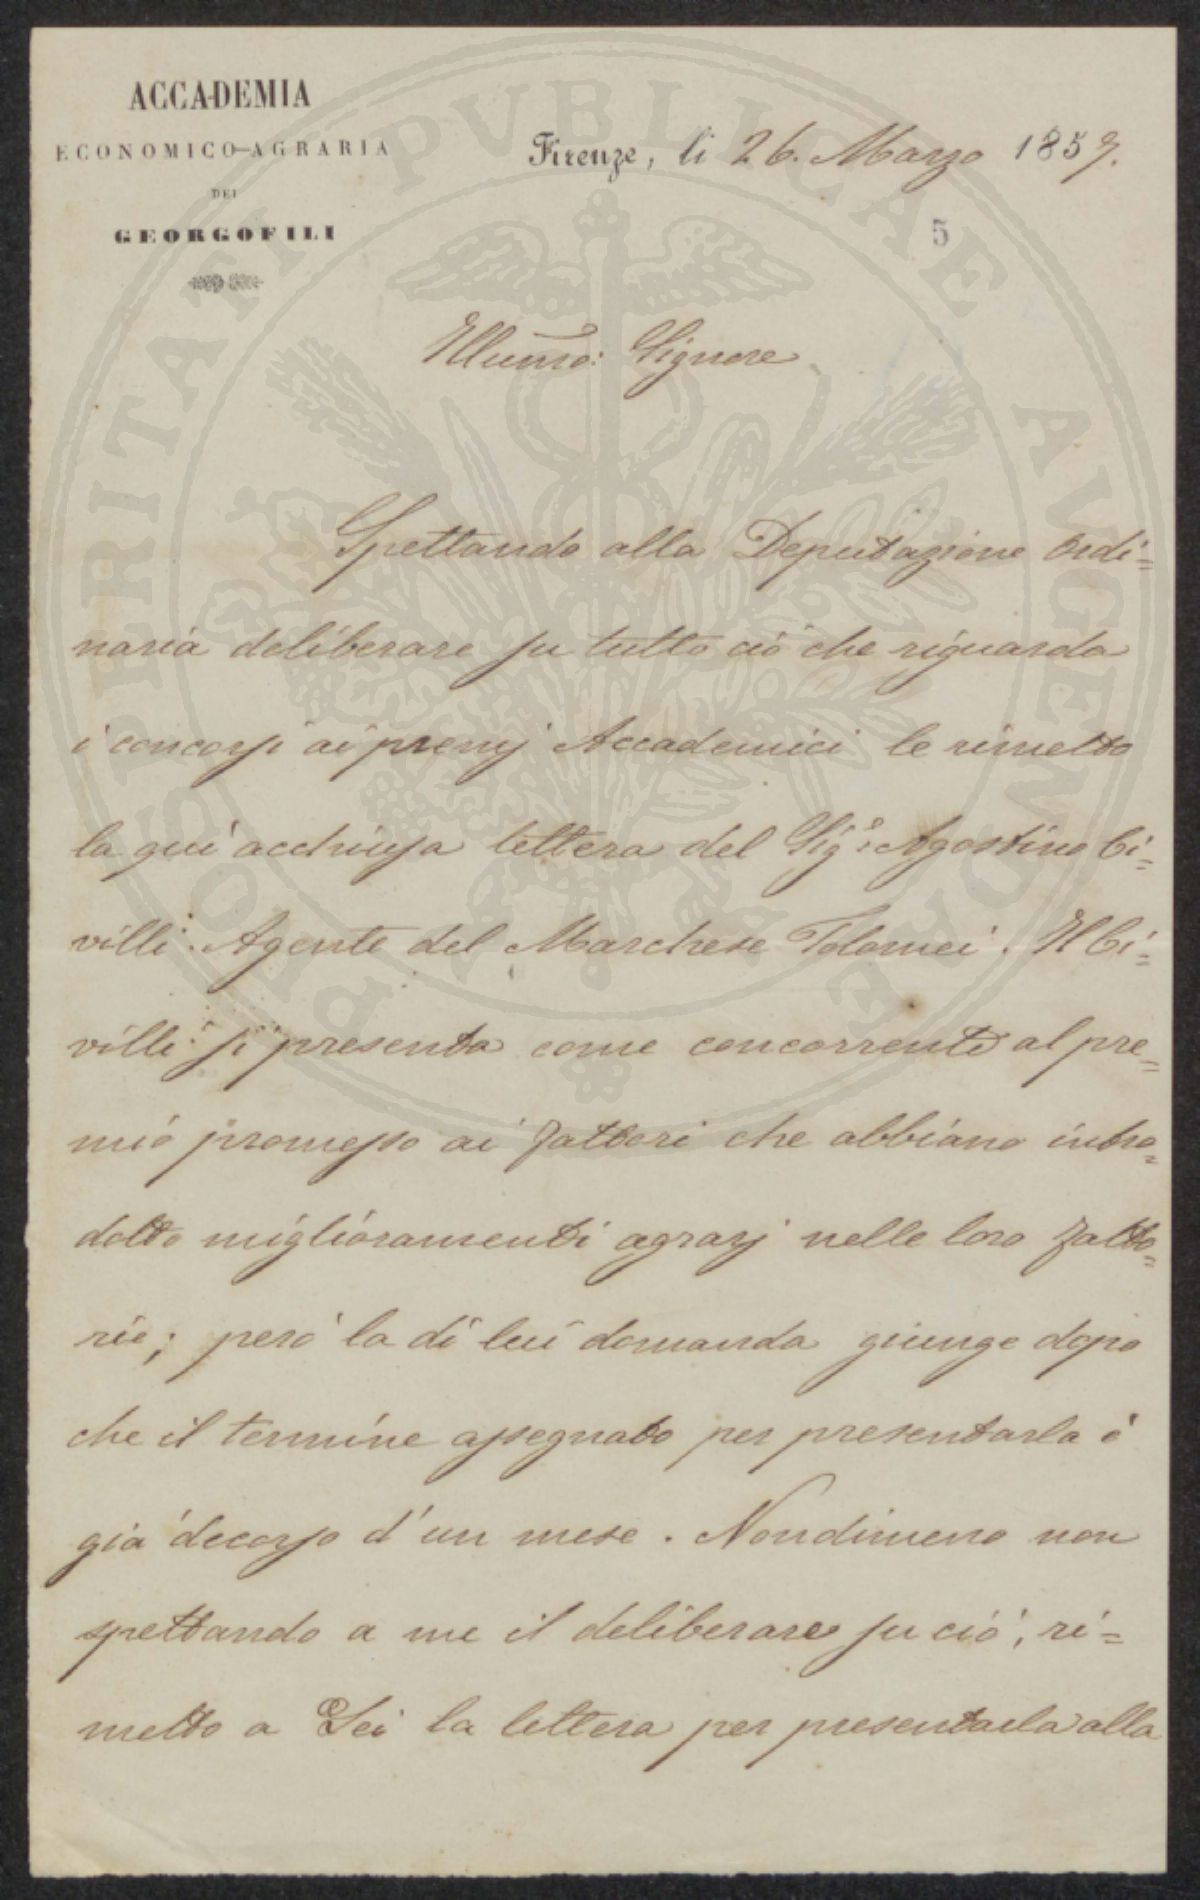 ACCADEMIA
ECONOMICO-AGRARIA
DEI
GEORGOFILI
Firenze, li 26. Marzo 1857.
5
Illumo: Signore
Spettando alla Deputazione Ordi=
naria deliberare su tutto ciò che riguarda
i concorsi ai premj Accademici le rimetto
la quì acchiusa lettera del Sigr: Agostino Ci=
villi Agente del Marchese Tolomei. Il Ci=
villi si presenta come concorrente al pre=
mio promesso ai Fattori che abbiano intro=
dotto miglioramenti agrarj nelle loro Fatto=
rie; però la di lui domanda giunge dopo
che il termine assegnato per presentarla è
già decorso d'un mese. Nondimeno non
spettando a me il deliberare su ciò, ri=
metto a Lei la lettera per presentarla alla
PROSPERITATI PVBLICAE AVGENDAE